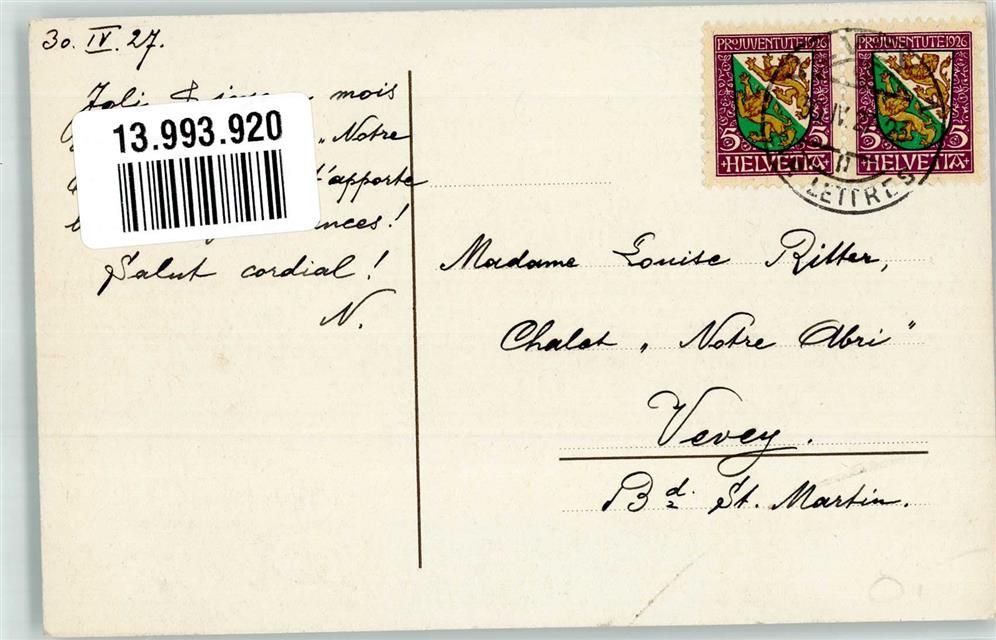 30. IV. 27.
Joli mois
„Notre
t'apporte
!
Salut cordial!
N.
13.993.920
PRO JUVENTUTE 1926
5 5
+HELVETIA+
PRO JUVENTUTE 1926
5 5
+HELVETIA+
LETTRES
Madame Louise Ritter,
Chalet „Notre Abri"
Vevey.
Bd. St. Martin.